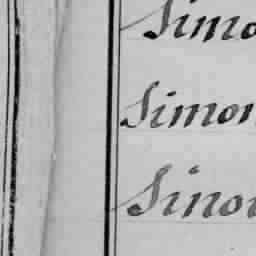 Simo
Simon
Sinou